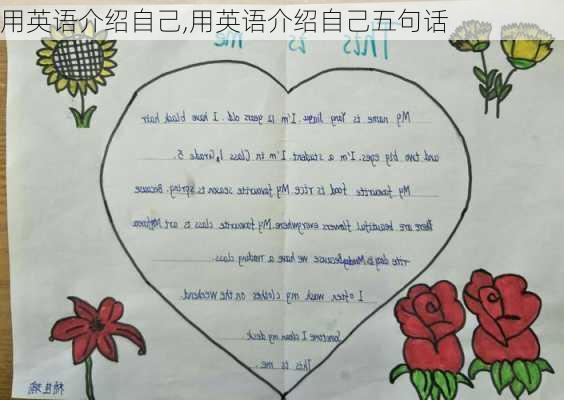 用英语介绍自己,用英语介绍自己五句话
This is me
My name is Yang I'm 12 years old. I have black hair
and two big eyes. I'm a student. I'm in Class 1, Grade 5.
My favourite food is rice. My favourite season is spring. Because
there are beautiful flowers everywhere. My favourite class is art. My favou
rite day is Monday. Because we have a reading class.
I often wash my clothes on the weekend.
Sometime I clean my desk
This is me.